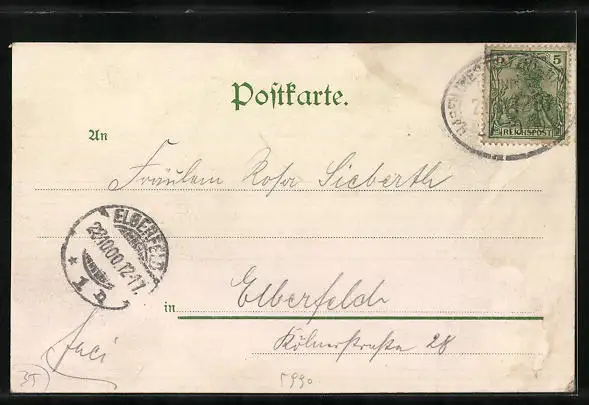 Postkarte.
5
REICHSPOST
An
Fräulein Rosa Sieberth
ELBERFELD
22.10.00.12-1
* 1 n
in Elberfeld
Kölnerstraße 28
35